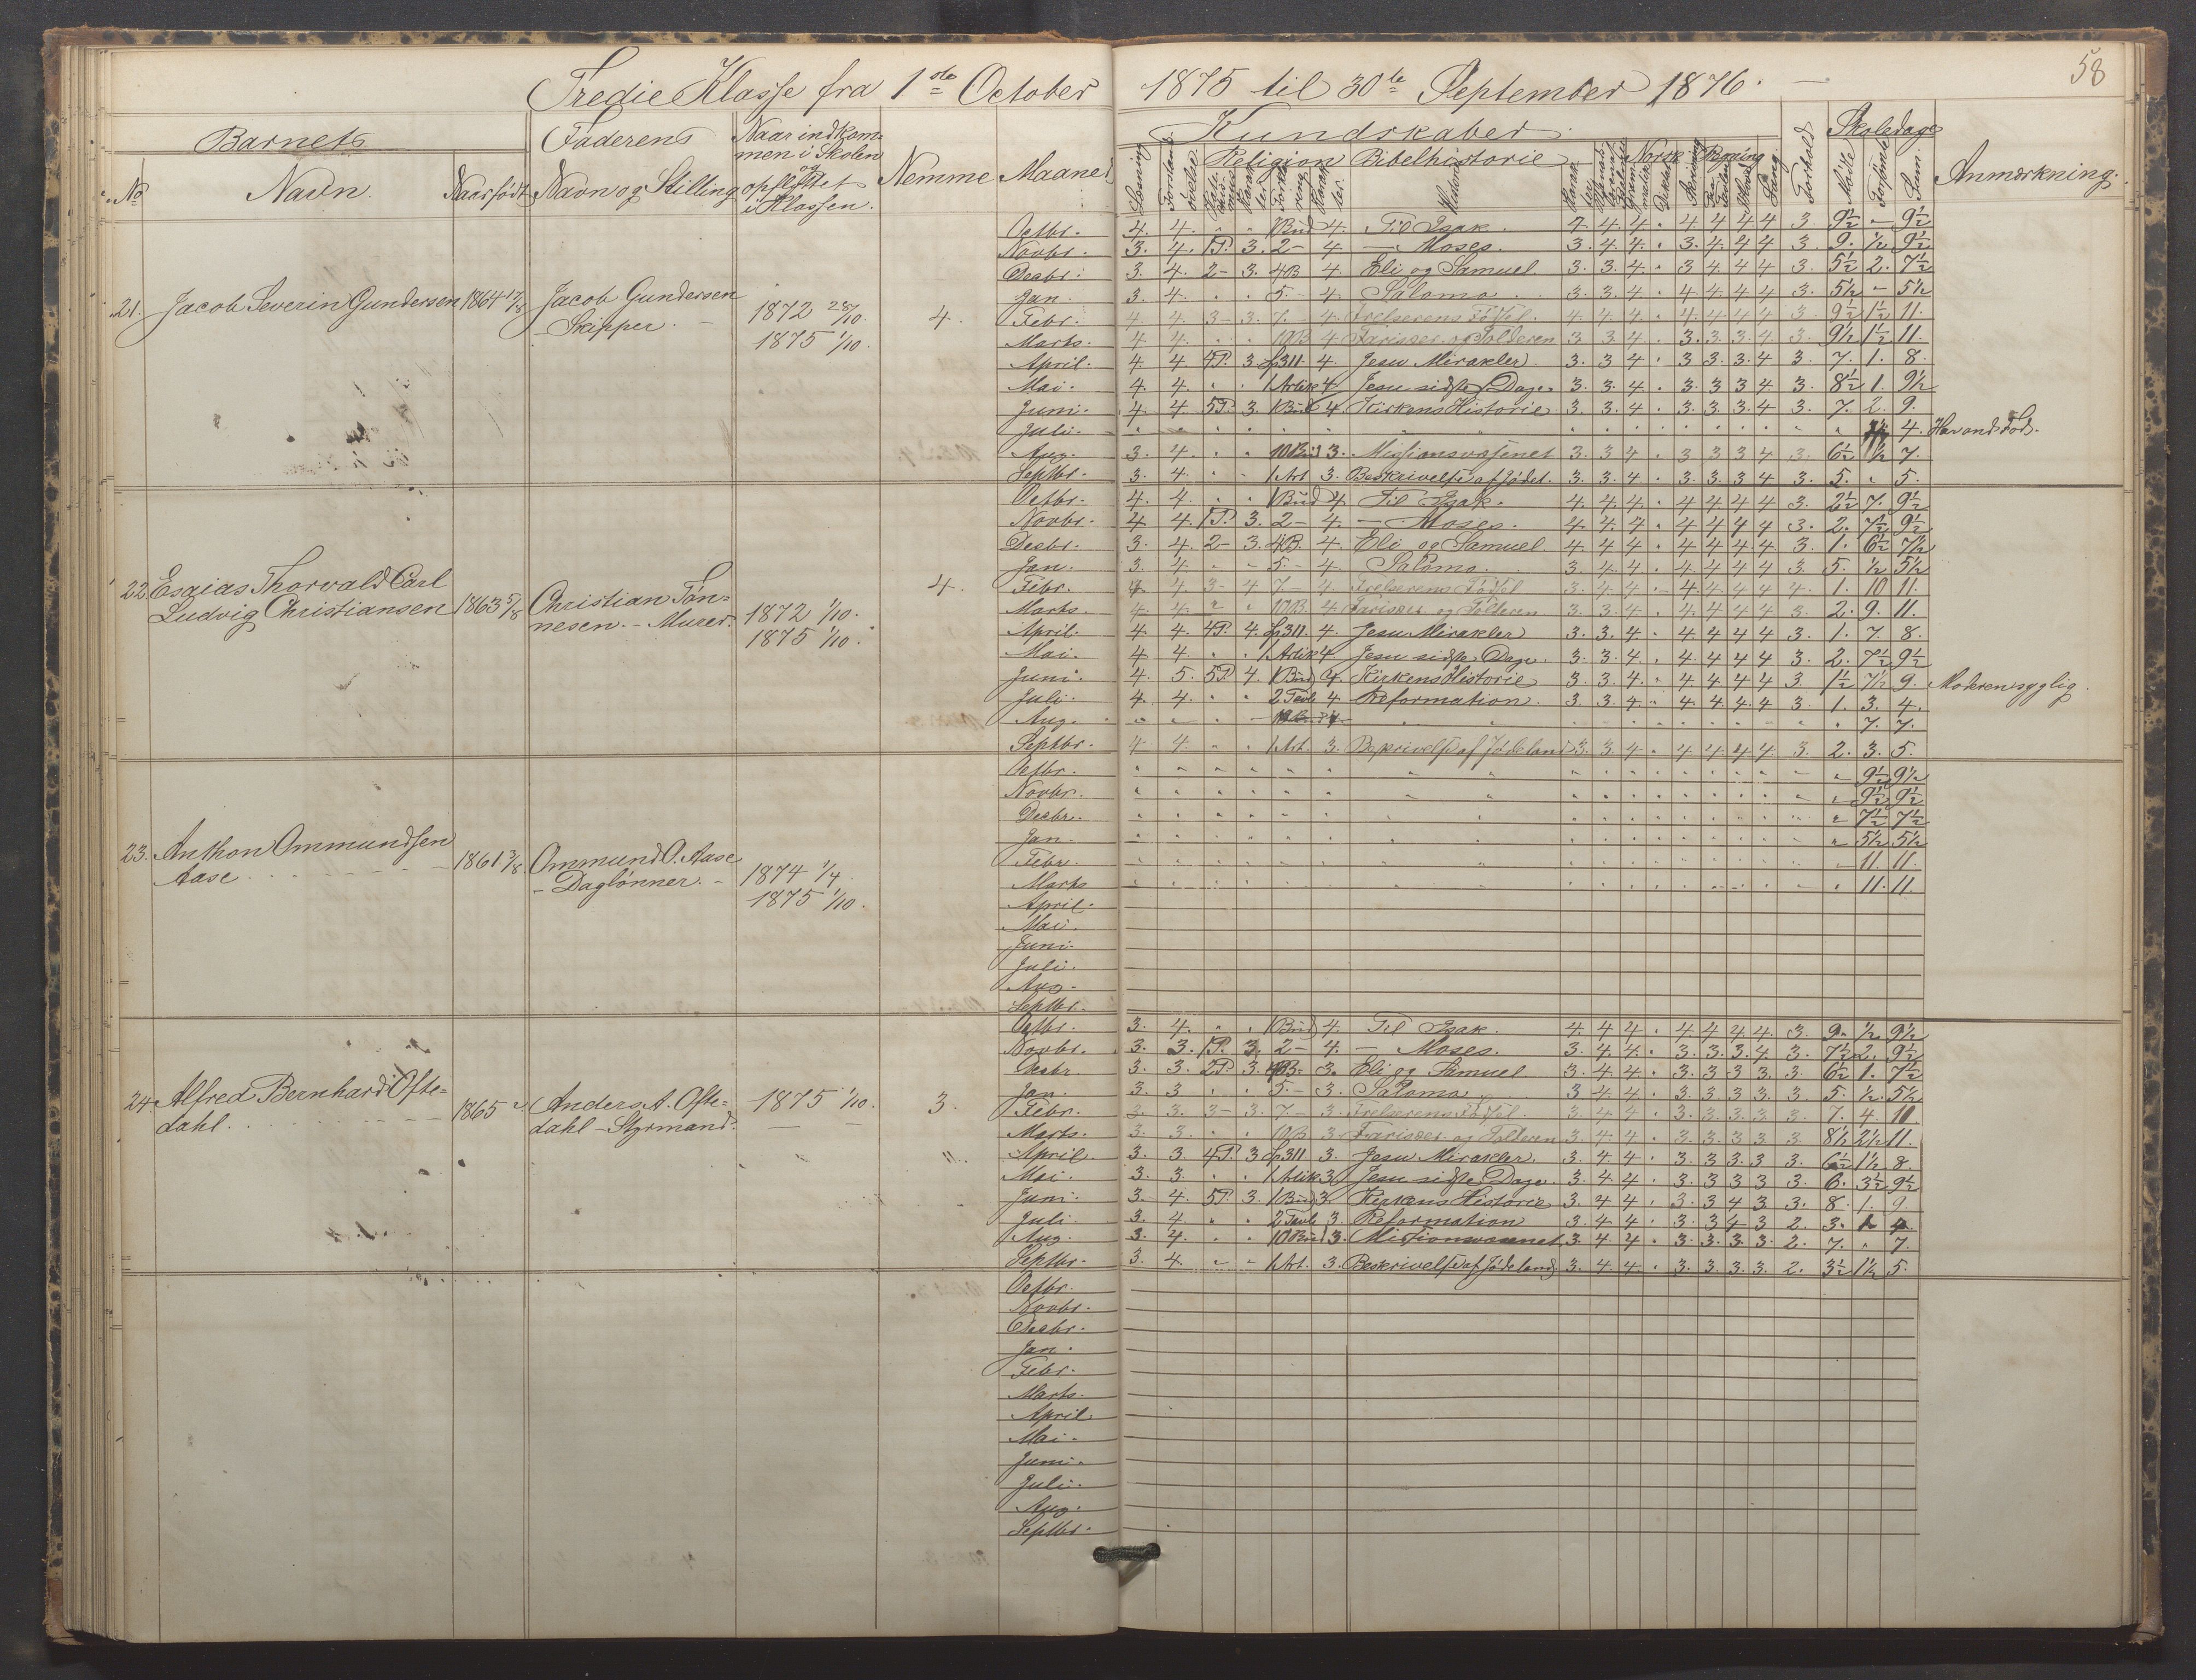 58
Tredie Klasse fra 1ste October 1875 til 30te September 1876.
Barnets
Faderens
Naar indkommen i Skolen og opflyttet i Klassen.
Nemme
Maaned
Kundskaber.
Skoledage
Anmærkning.
No
Navn.
Naar født
Navn og Stilling
Læsning
Religion
Bibelhistorie
Norsk
Regning
Sang.
Forhold
Mödte
Forsömte
Sum.
21. Jacob Severin Gundersen
Jacob Gundersen
- Skipper. -
1872 28/10
1875 1/10.
4.
Octbr. 4. 4. 1 Bud 4. Til Isak. 4. 4. 4. 4 4 4 4 3. 9½ - 9½
Novbr. 3. 4. 1P. 3. 2- 4 - Moses. 3. 4. 4. 3. 4. 4 4 3. 9. ½ 9½
Decbr. 3. 4. 2- 3. 4B 4. Eli og Samuel. 3. 3. 4. 3 4. 4 4 3. 5½ 2. 7½
Jan. 3. 4. 5.- 4. Salomo. 3. 3. 4. 4. 4. 4 4 3. 5½ - 5½
Febr. 4 4. 3- 3. 7.- 4. 4. 4. 4. 4. 4. 4. 4 3 9½ 1½ 11.
Marts. 4 4. 10B 4 3 3 4. 3. 3. 3 4 3. 9½ 1½ 11.
April. 4 4 4P. 3. 4 Jesu Mirakler. 3. 3 4 3 3. 3. 4 3. 7. 1. 8.
Mai. 4 4. 1 Artik 4 Jesu sidste Dage. 3. 3. 4. 3. 3 3 4 3. 8½ 1. 9½
Juni. 4. 4. 5P. 3. 1 Bud 4. Kirkens Historie 3. 3. 4 3. 3. 3. 4 3. 7. 2. 9.
Juli. 4. Har ondt Fod.
Aug. 3. 4. 10 Bud 3. Missionsvæsenet 3. 3 4 3 3 3 4 3. 6½ ½ 7.
Septbr. 3. 4. 1 Art 3. 3. 3. 4. 3. 3. 3 4 3. 5. 5.
22. Esaias Thorvald Carl
Ludvig Christiansen 1863 5/8
Christian Tön=
nesen. - Murer.
1872 1/10.
1875 1/10.
4.
Octbr. 4. 4. 1 Bud 4. Til Isak. 4. 4. 4. 4 4 4 4 3. 2½ 7. 9½
Novbr. 4 4. 1P. 3. 2- 4. - Moses. 4. 4. 4. 4 4 4 4 3. 2. 7½ 9½
Decbr. 3. 4. 2- 3. 4B. 4. Eli og Samuel. 4. 4 4 4 4 4 4 3. 1. 6½ 7½
Jan. 3 4 5.- 4 Salomo. 3. 4. 4. 4. 4 4 4 3 5. ½ 5½
Febr. 4. 4. 3- 4. 7- 4. 3. 4 4. 4. 4 4 4 4. 1. 10 11.
Marts. 4 4. 10B. 4 3 3 4. 4 4 4 4 3. 2. 9. 11.
April. 4 4. 4P. 4. 4. Jesu Mirakler 3. 3. 4. 4. 4 4 4 3. 1. 7. 8.
Mai. 4 4. 1 Artik 4 Jesu sidste Dage. 3. 3. 4. 4. 4 4 4 3. 2. 7½ 9½
Juni. 4. 5. 5P. 4. 1 Bud 4. Kirkens Historie 3. 3. 4. 4 4 4 4 3. 1½ 7½ 9. Moderen syglig.
Juli. 4. 4. 2 Tavle 4 Reformation 3. 3 4 4. 4. 4 4 3. 1. 3. 4.
Aug. 7. 7.
Septbr. 4 4. 1 Art. 3. Beskrivelse af Jödeland 3. 3. 4 4 4. 4 4. 3. 2. 3. 5.
23. Anthon Ommundsen
Aase 1861 3/8
Ommund O. Aase
- Daglönner. -
1874 1/4
1875 1/10.
Octbr. 9½ 9½
Novbr. 9½ 9½
Decbr. 7½ 7½
Jan. 5½ 5½
Febr. 11. 11.
Marts 11. 11.
April.
Mai.
Juni.
Juli.
Aug.
Septbr.
24. Alfred Bernhard Ofte=
dahl. 1865
Anders A. Ofte=
dahl - Styrmand.
1875 1/10.
3.
Octbr. 3. 4. 1 Bud 4. Til Isak. 4. 4 4 4 4 4 4. 3. 9. ½ 9½
Novbr. 3. 3. 1P. 3. 2- 4. - Moses. 3. 4. 4. 3. 3. 3. 4 3. 7½ 2. 9½
Decbr. 3. 3. 2P 3. 3. Eli og Samuel 3. 4 4. 3. 3 3 3. 3. 6½ 1. 7½
Jan. 3. 3 5.- 3. Salomo. 3 4 4 3. 3 3 3. 3. 5. ½. 5½
Febr. 3. 3. 3- 3. 7- 3. 3 4 4 3. 3 3 3 3. 7. 4. 11
Marts. 3. 3. 10B 3 3. 4. 4 3. 3. 3 3 3. 8½ 2½ 11.
April. 3. 3 4P. 3 3. Jesu Mirakler. 3. 4 4. 3. 3 3. 3 3. 6½ 1½ 8.
Mai. 3 3. 1 Artik 3 Jesu sidste Dage. 3. 4. 4 3. 3 3 3 3. 6. 3½ 9½
Juni. 3. 4. 5P. 3. 1 Bud 3. Kirkens Historie 3. 4 4 3. 3 4 3. 3. 8. 1. 9.
Juli. 3. 4. 2 Tavle 3. Reformation 3. 4 4 3. 3 4 3 2. 3. 1 4.
Aug. 3. 4. 10 Bud 3. 3. 4 4 3. 3. 3. 3 2. 7. 7.
Septbr. 3. 4. 1 Art. 3. Beskrivelse af Jödeland 3. 4. 4. 3. 3. 3. 3. 2. 3½ 1½ 5.
Octbr.
Novbr.
Decbr.
Jan.
Febr.
Marts.
April.
Mai.
Juni.
Juli.
Aug.
Septbr.